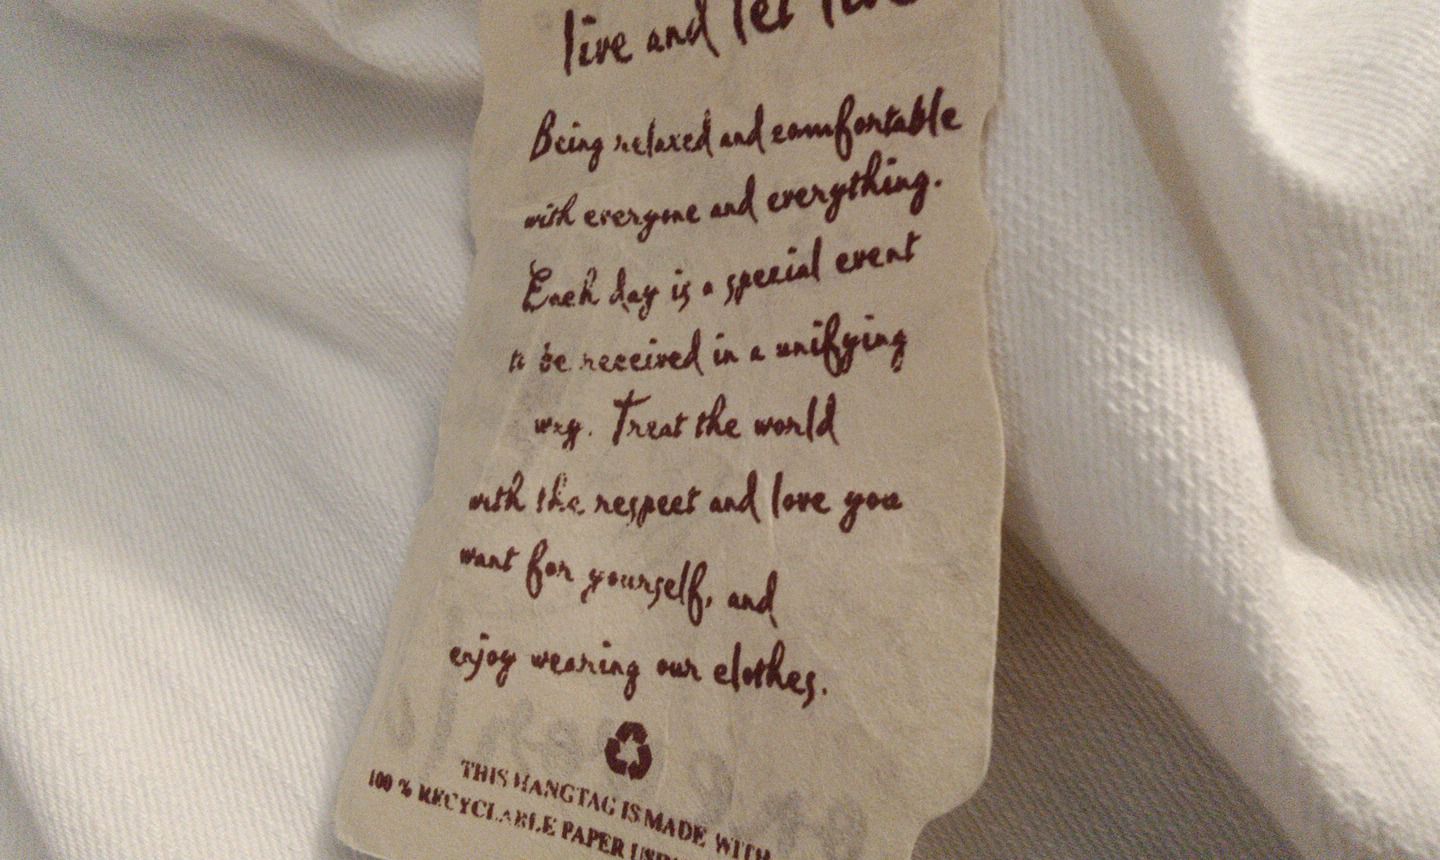 live and let live
Being relaxed and comfortable
with everyone and everything.
Each day is a special event
to be received in a unifying
way. Treat the world
with the respect and love you
want for yourself, and
enjoy wearing our clothes.
THIS HANGTAG IS MADE WITH
100 % RECYCLABLE PAPER USING